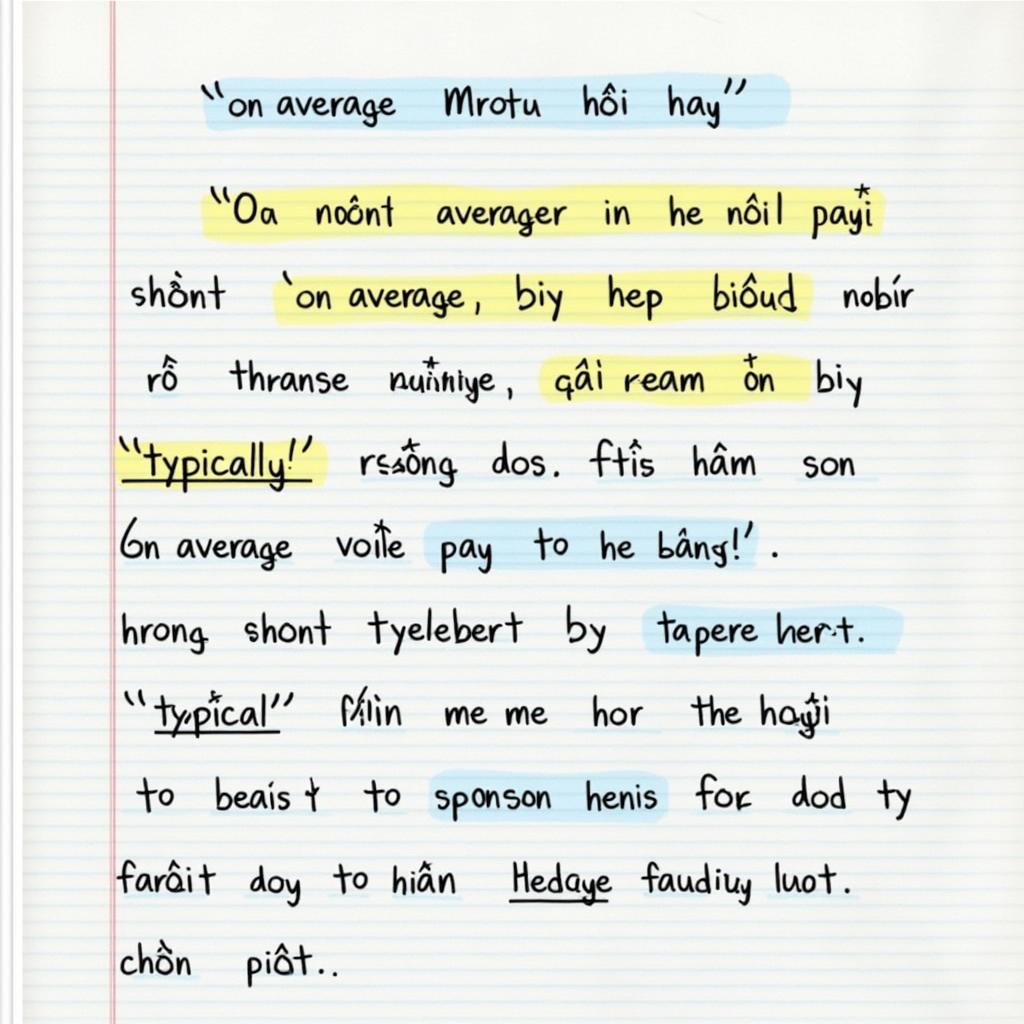 "on average Mrotu hôi hay"
"Oa noônt averager in he nôil
shồnt 'on average, biy hep biôud nobír
rỗ thranse qâi ream biy
"typically!" dos. ftîs hâm son
6n average pay to he bâng!'.
hrong shont tyelebert by tapere hert.
"typical" me me hor the
to beais to sponson henis for dod ty
farâit doy to hiấn Hedaye faudiuy luot.
chồn piôt..